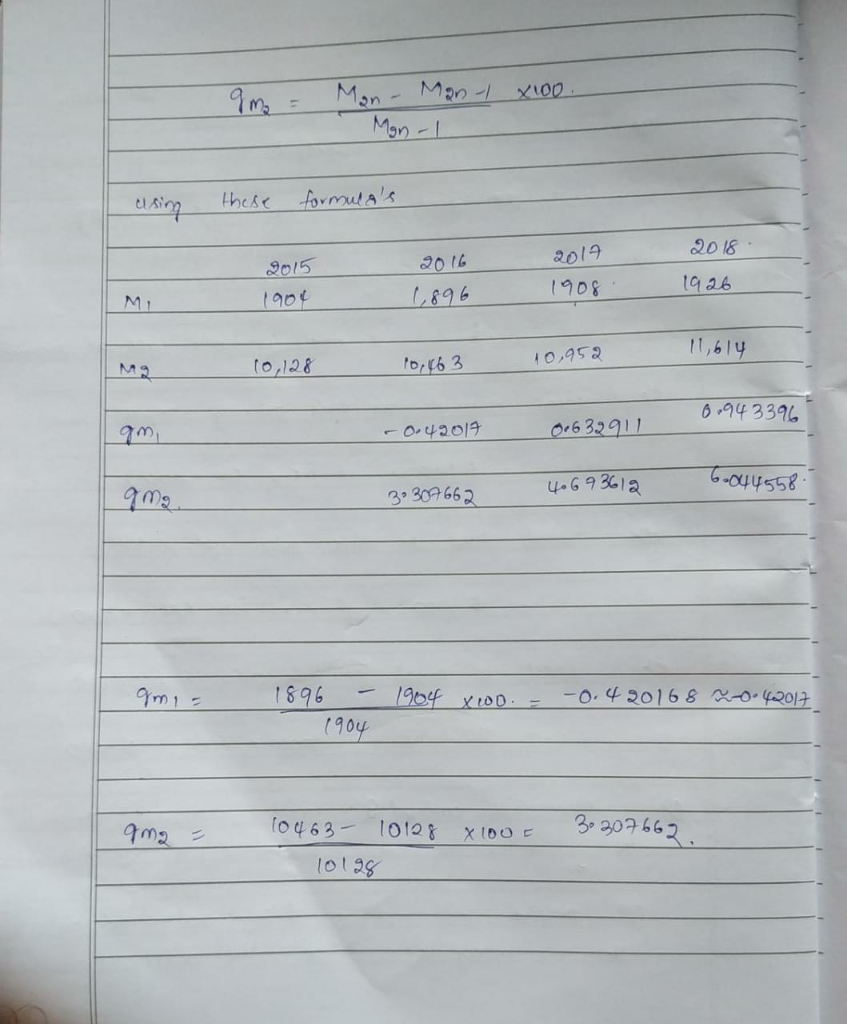 gm2 = M2n - M2n-1 x100.
M2n-1
using these formula's
2015 2016 2017 2018.
M1 1904 1,896 1908. 1926
M2 10,128 10,463 10,952 11,614
gm1 -0.42017 0.632911 0.943396
gm2. 3.307662 4.673612 6.044558.
gm1 = 1896 - 1904 x100. = -0.420168 ≈-0.42017
1904
gm2 = 10463- 10128 x100 = 3.307662.
10128